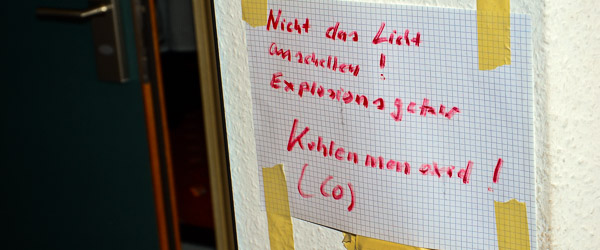 Nicht das Licht
anschalten !
Explosionsgefahr
Kohlenmonoxid !
(CO)